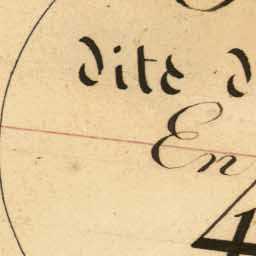 dite d
En
4